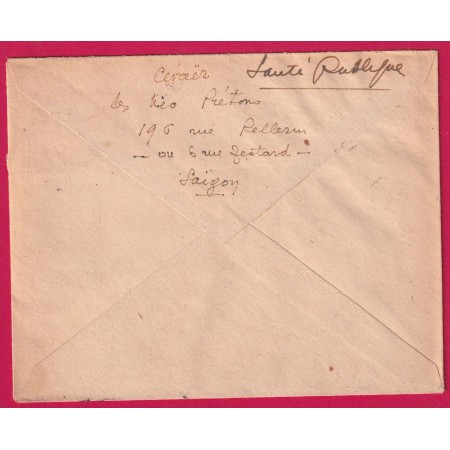 Cevaër Santé Publique
les Néo Prétons
196 rue Pellerin
— ou 6 rue Testard —
Saïgon